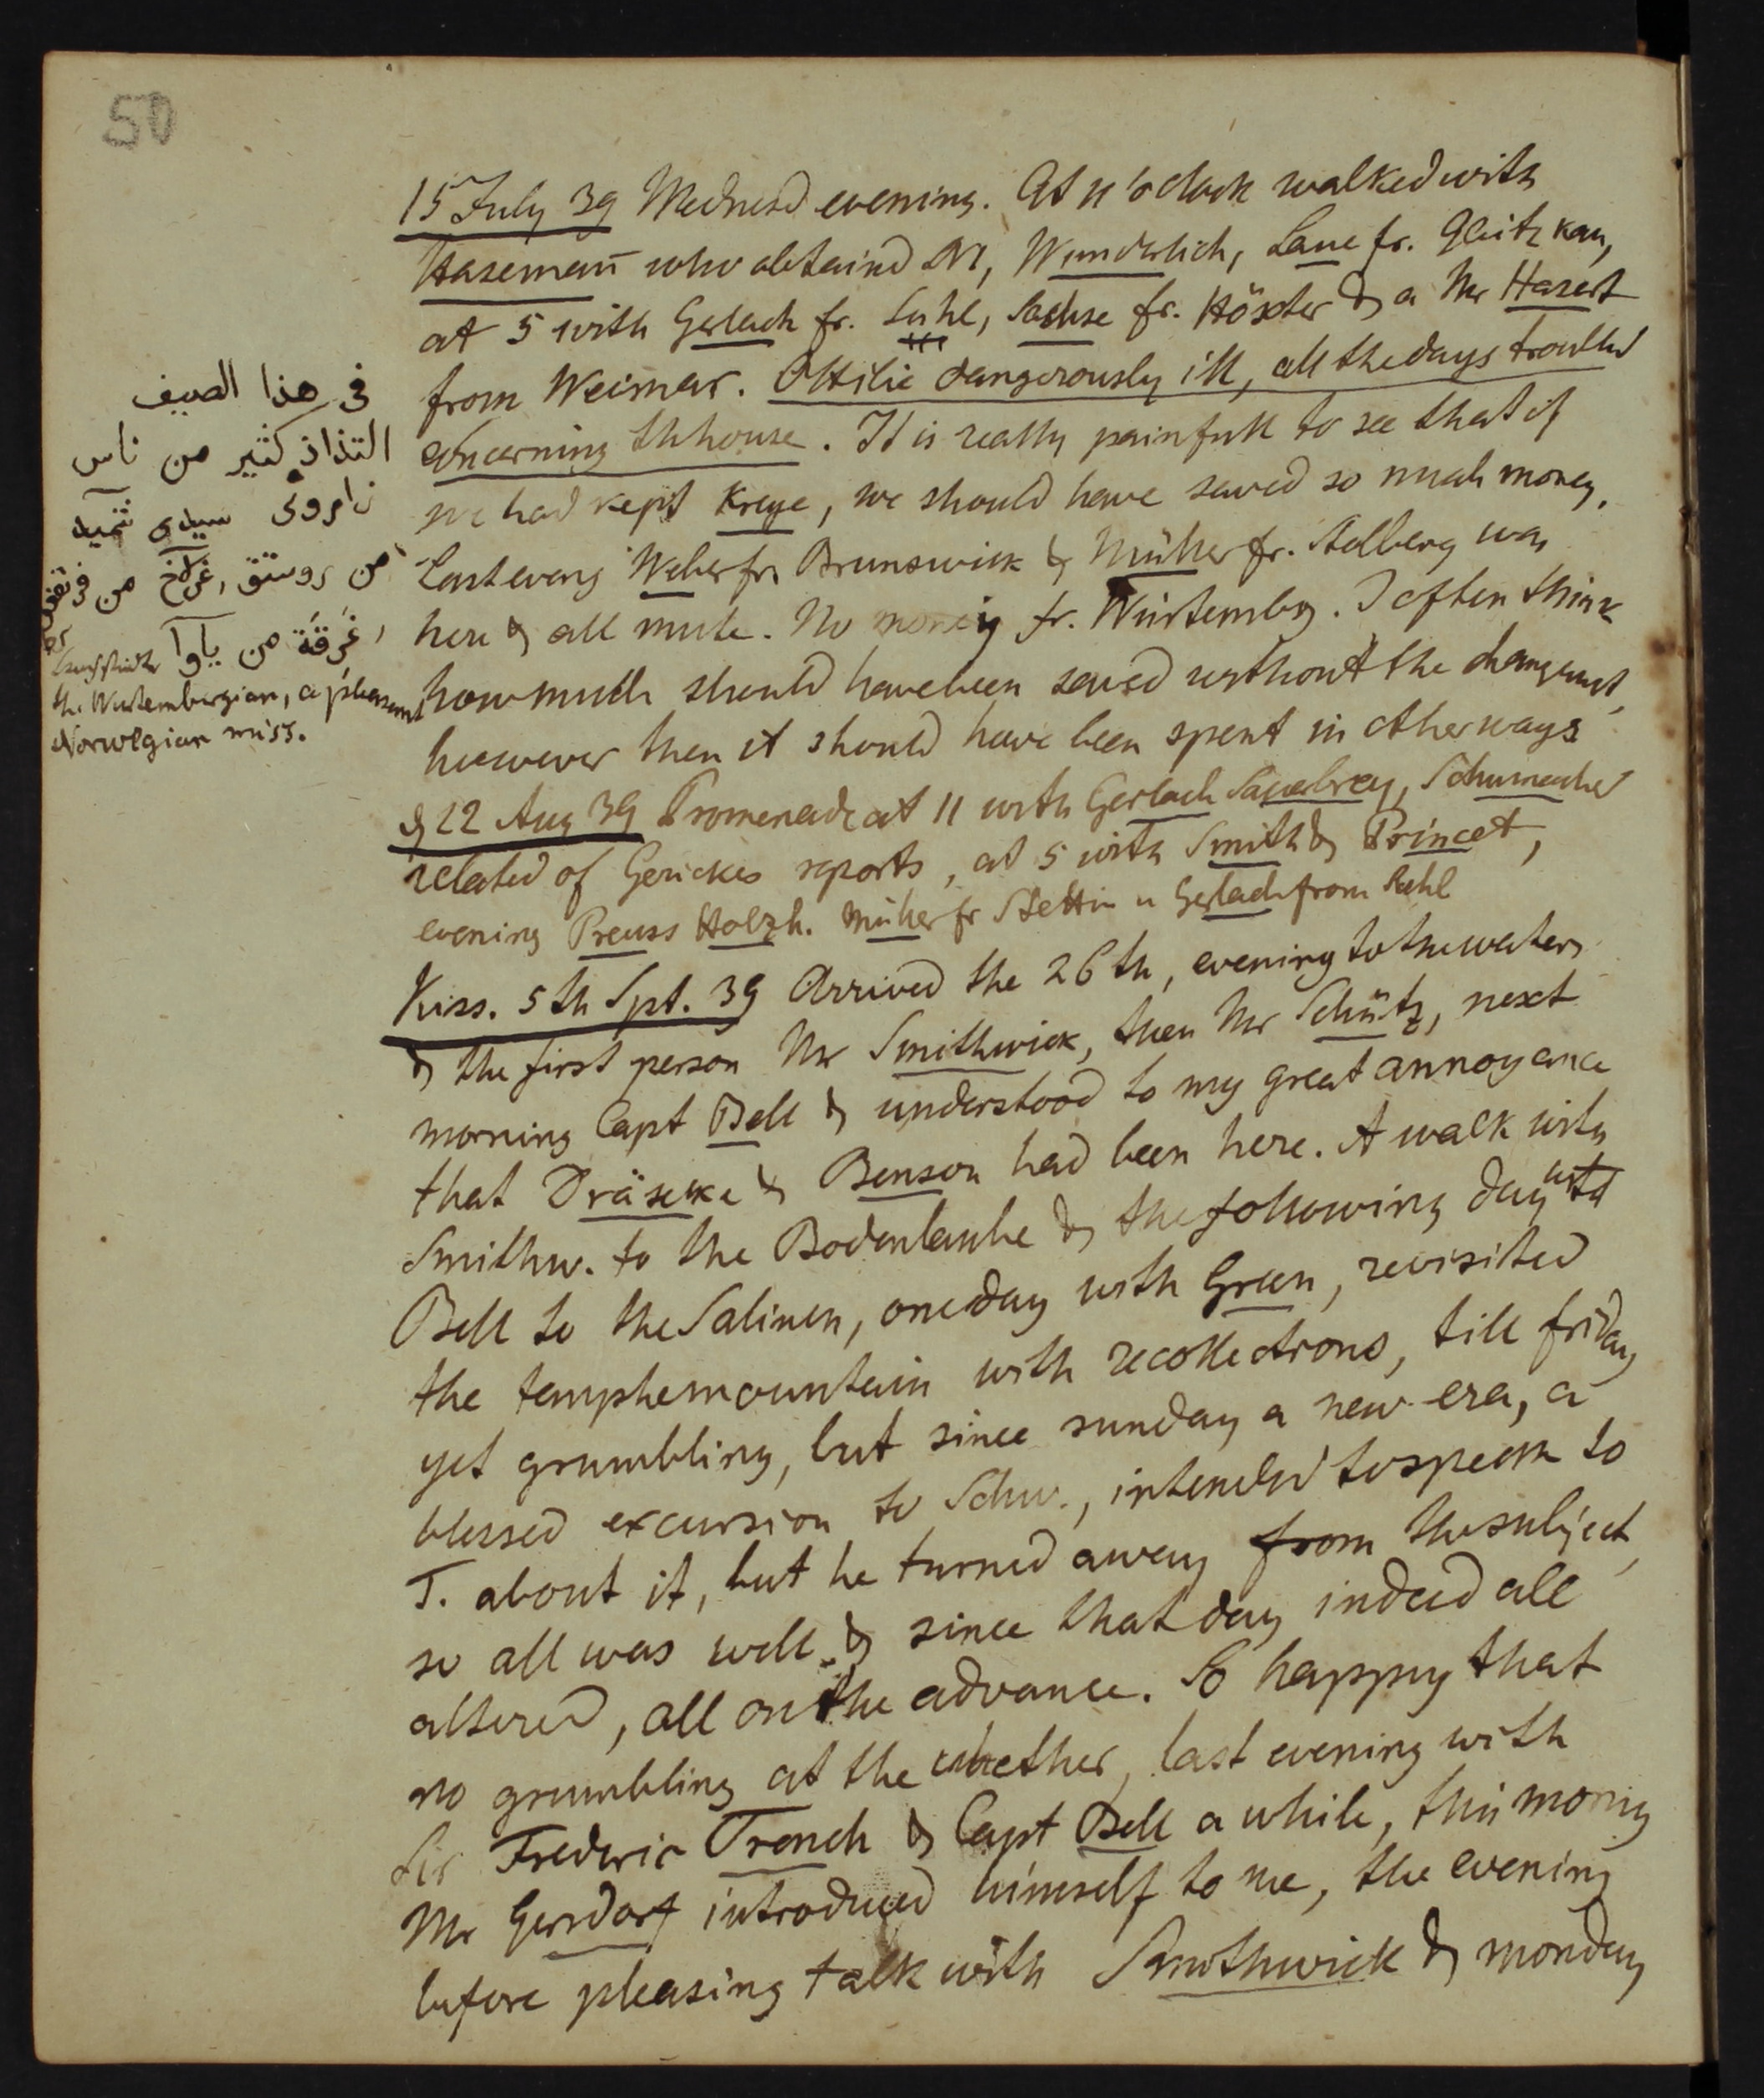 50
15 July 39 Wednesd evening. At 11 o'clock walked with
Hasemañ who obtaind N1, Wunderlich, Laue fr. Gleitzkau,
at 5 with Gerlach fr. Suhl, Sachse fr. Höxter & a Mr Hasert
from Weimar. Ottilie dangerously ill, all the days troubled
concerning th house. It is really painfull to see that if
we had kept Kreye, we should have saved so much money.
Last eveng Weber fr. Brunswick & Müller fr. Stolberg was
here & all mute. No money fr. Würtembrg. I often think
how much should have been saved without the changement,
however then it should have been spent in other ways
& 22 Aug 39 Promenade at 11 with Gerlach Sauerbrey, Schumacher
related of Gerickes reports, at 5 with Smith & Princet,
evening Preuss Holzh. Müller fr Stettin u Gerlach from Suhl
Kiss. 5th Spt. 39 Arrived the 26th, evening to the waters
& the first person Mr Smithwick, then Mr Schütz, next
morning Capt Bell & understood to my great annoyance
that Dräseke & Benson had been here. A walk with
Smithw. to the Bodenlaube & the following day with
Bell to the Salinen, one day with Green, revisited
the templemountain with recollections, till friday
yet grumbling, but since sunday a new era, a
blessed excursion to Schw., intended to speak to
T. about it, but he turned away from the subject,
so all was well & since that day indeed all
altered, all on the advance. So happy that
no grumbling at the whether, last evening with
Sir Frederic Trench & Capt Bell a while, this mornig
Mr Gersdorf introduced himself to me, the evening
before pleasing talk with Smithwick & monday
في هذا الصيف
التذاذ كثير من ناس
سيدي
من
من
من ياوا
the Wurtembergian, a pleasant
Norwegian miss.